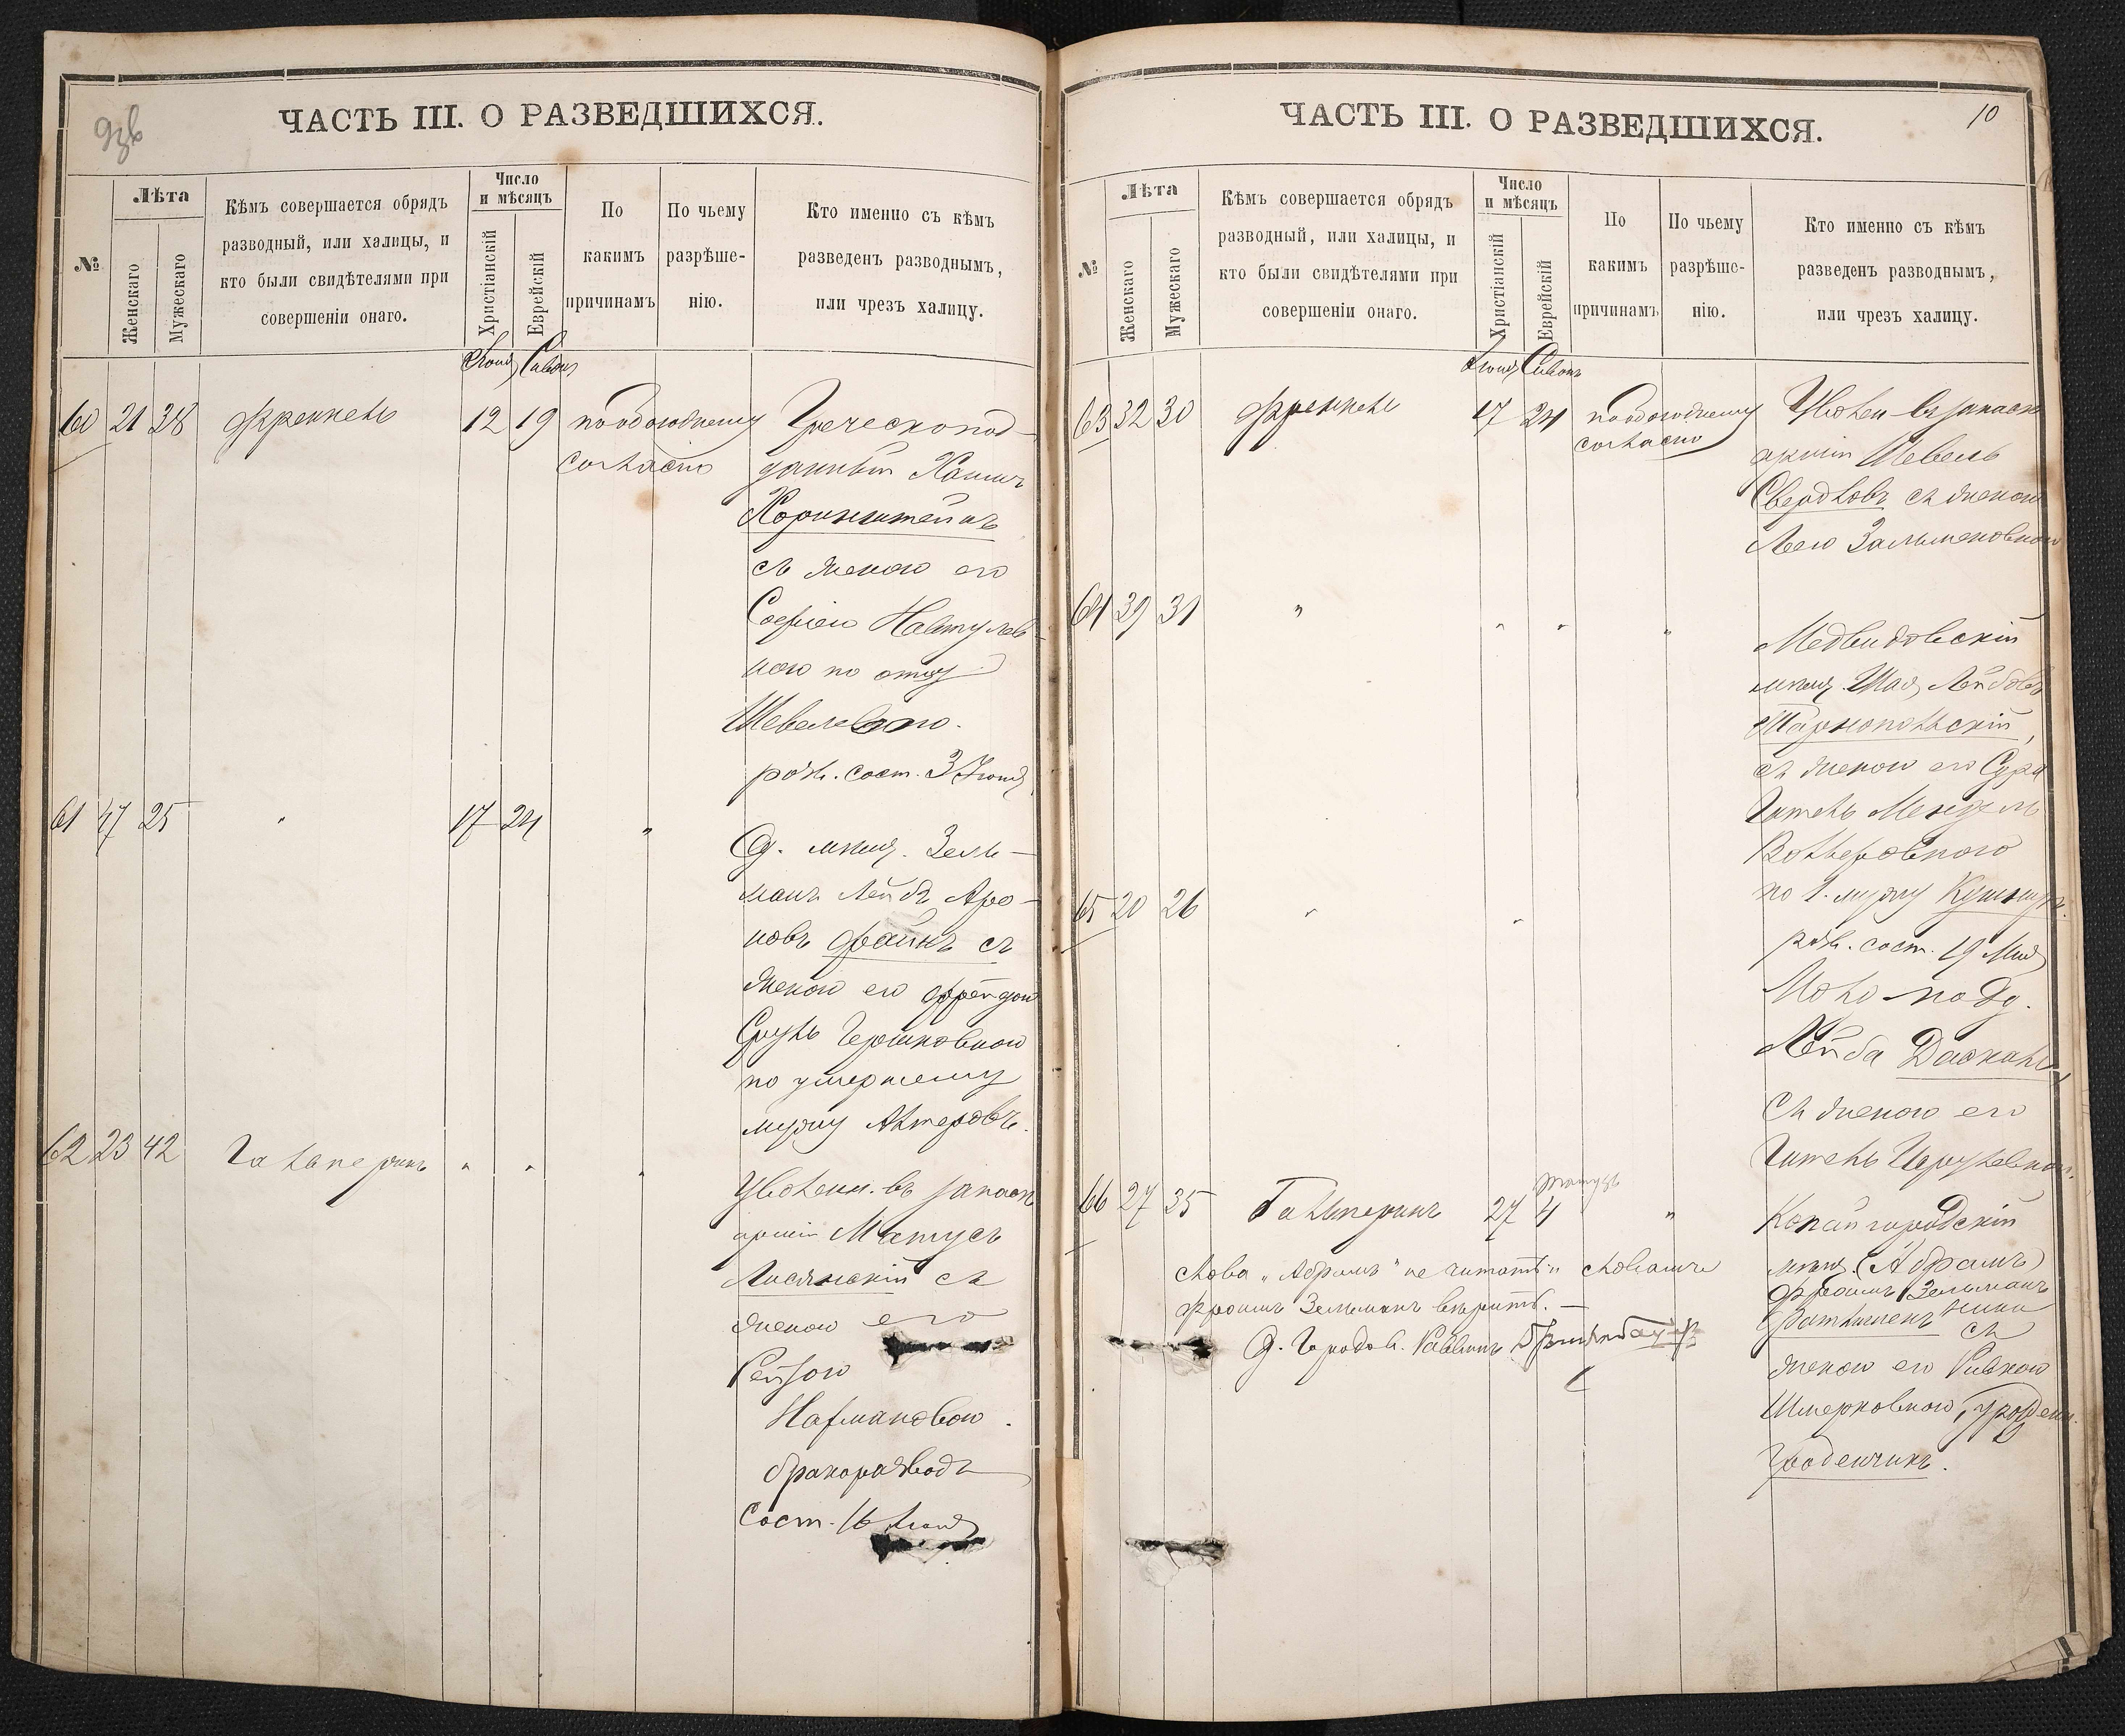 ЧАСТЬ III. О РАЗВЕДШИХСЯ.
№
Лѣта
Женскаго
Мужескаго
Кѣмъ совершается обрядъ
разводный, или халицы, и
кто были свидѣтелями при
совершеніи онаго.
Число
и мѣсяцъ
Христіанскій
Еврейскій
По
какимъ
причинамъ
По чьему
разрѣше-
нію.
Кто именно съ кѣмъ
разведенъ разводнымъ,
или чрезъ халицу.
Іюня Сивонъ
60 21 38 Френкель 12 19 пообоюдному
согласію
Греческопод-
данный Хаимъ
Коринштейнъ
съ женою его
Софіею Нафтулев-
ною по отцу
Шевелевою.
разв. сост. 3 Іюня
61 47 25 " 17 24 "
Од. мѣщ. Зель-
манъ Лейбъ Аро-
новъ Файнъ съ
женою его Фрейдою
Сруль Гершковною
по умершему
мужу Альтеровъ.
62 23 42 Гальперинъ " " "
Уволен. въ запасъ
арміи Матусъ
Лисянскій съ
женою его
Рейзою
Нахмановою.
бракоразводъ
сост. 16 Іюня
ЧАСТЬ III. О РАЗВЕДШИХСЯ.
10
№
Лѣта
Женскаго
Мужескаго
Кѣмъ совершается обрядъ
разводный, или халицы, и
кто были свидѣтелями при
совершеніи онаго.
Число
и мѣсяцъ
Христіанскій
Еврейскій
По
какимъ
причинамъ
По чьему
разрѣше-
нію.
Кто именно съ кѣмъ
разведенъ разводнымъ,
или чрезъ халицу.
Іюня Сивонъ
63 32 30 Френкель 17 24 пообоюдному
согласію
Уволен въ запасъ
арміи Шевель
Свердловъ съ женою
Леею Зальмановною
64 39 31 " " " "
Медвидовскій
мѣщ. Шая Лейбовъ
Тарнопольскій,
съ женою его Сура
Гитель Мендель
Вольфовною
по 1. мужу
разв. сост. 19 Мая
65 20 26 " "
Лейба
съ женою его
Гитель
66 27 35 Гальперинъ 27 4 "
Тамузъ
Копайгородскій
мѣщ. (Абрамъ)
Фроимъ Зельманъ
съ
женою его Ривкою
Шмерковною, урожден.
Гроденчикъ.
слова "Абрамъ" не читать, словамъ
Фроимъ Зельманъ вѣрить. —
О. Городов. Раввинъ